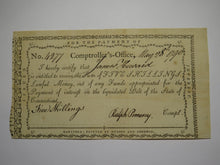 FOR THE PAYMENT OF
No. 4277 Comptroller's-Office, May 28th 1790
I hereby certify that James
is entitled to receive the Sum of FIVE SHILLINGS,
Lawful Money, out of any Funds appropriated for the
Payment of Interest on the Liquidated Debt of the State of
Connecticut,
Five Shillings
Ralph Pomeroy Compt.
HARTFORD: PRINTED BY HUDSON AND GOODWIN.